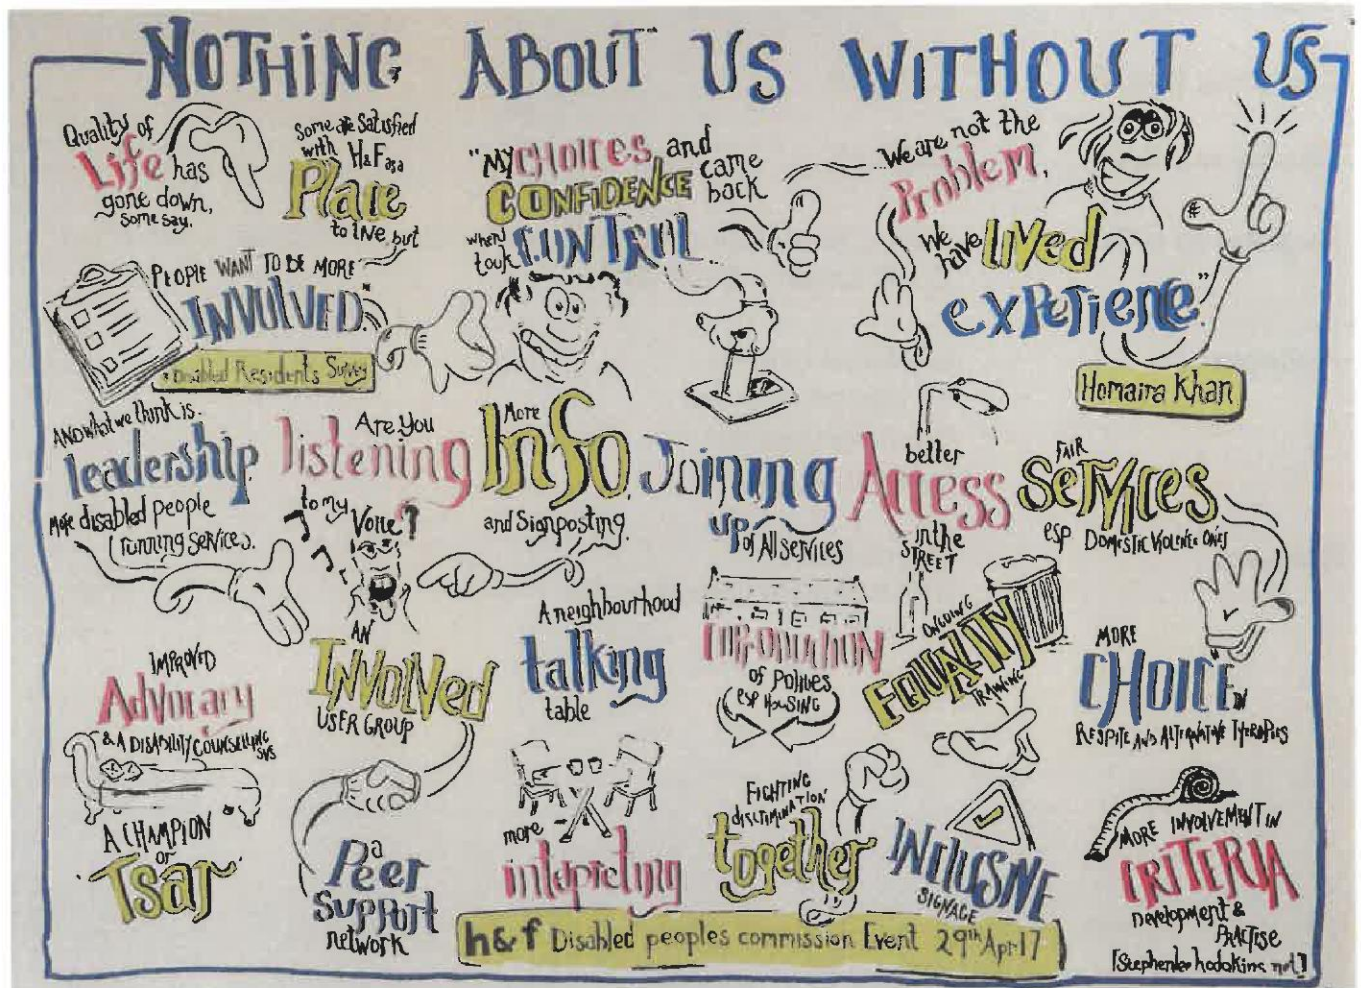 NOTHING ABOUT US WITHOUT US
Quality of
Life has
gone down,
some say.
Some are Satisfied
with H&F as a
Place
to live, but
PEOPLE WANT TO BE MORE
INVOLVED"
Disabled Residents Survey
"My CHOICES and
CONFIDENCE came
back
when
took CONTROL
We are not the
Problem.
We
have lived
experience"
Homaira Khan
AND what we think is.
leadership.
More disabled people
running services.
Are You
listening
to my
Voice?
More
Info
and Signposting.
Joining
up
of All services
better
Access
in the
STREET
FAIR
Services
esp DOMESTIC VIOLENCE ONES
IMPROVED
Advocacy
& A DISABILITY COUNSELLING
SVS
A CHAMPION
or
Tsar
AN
INVOLVED
USER GROUP
a
Peer
Support
network
A neighbourhood
talking
table
more
interpreting
COPRODUCTION
of Policies
esp HOUSING
ONGOING
EQUALITY
TRAINING
FIGHTING
DISCRIMINATION
together
INCLUSIVE
SIGNAGE
MORE
CHOICE IN
RESPITE AND ALTERNATIVE THERAPIES
MORE INVOLVEMENT IN
CRITERIA
Development &
PRACTISE
h&f Disabled peoples commission Event 29th Apr 17